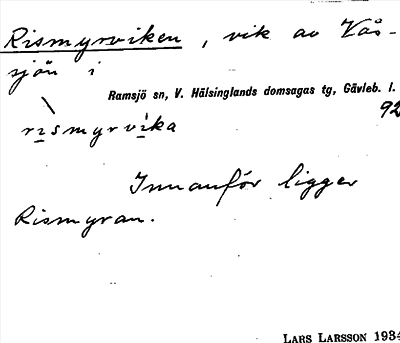 Rismyrviken, vik av Vås-
sjön i
Ramsjö sn, V. Hälsinglands domsagas tg, Gävleb. l.
92
rismyrvika
Innanför ligger
Rismyran.
LARS LARSSON 1934